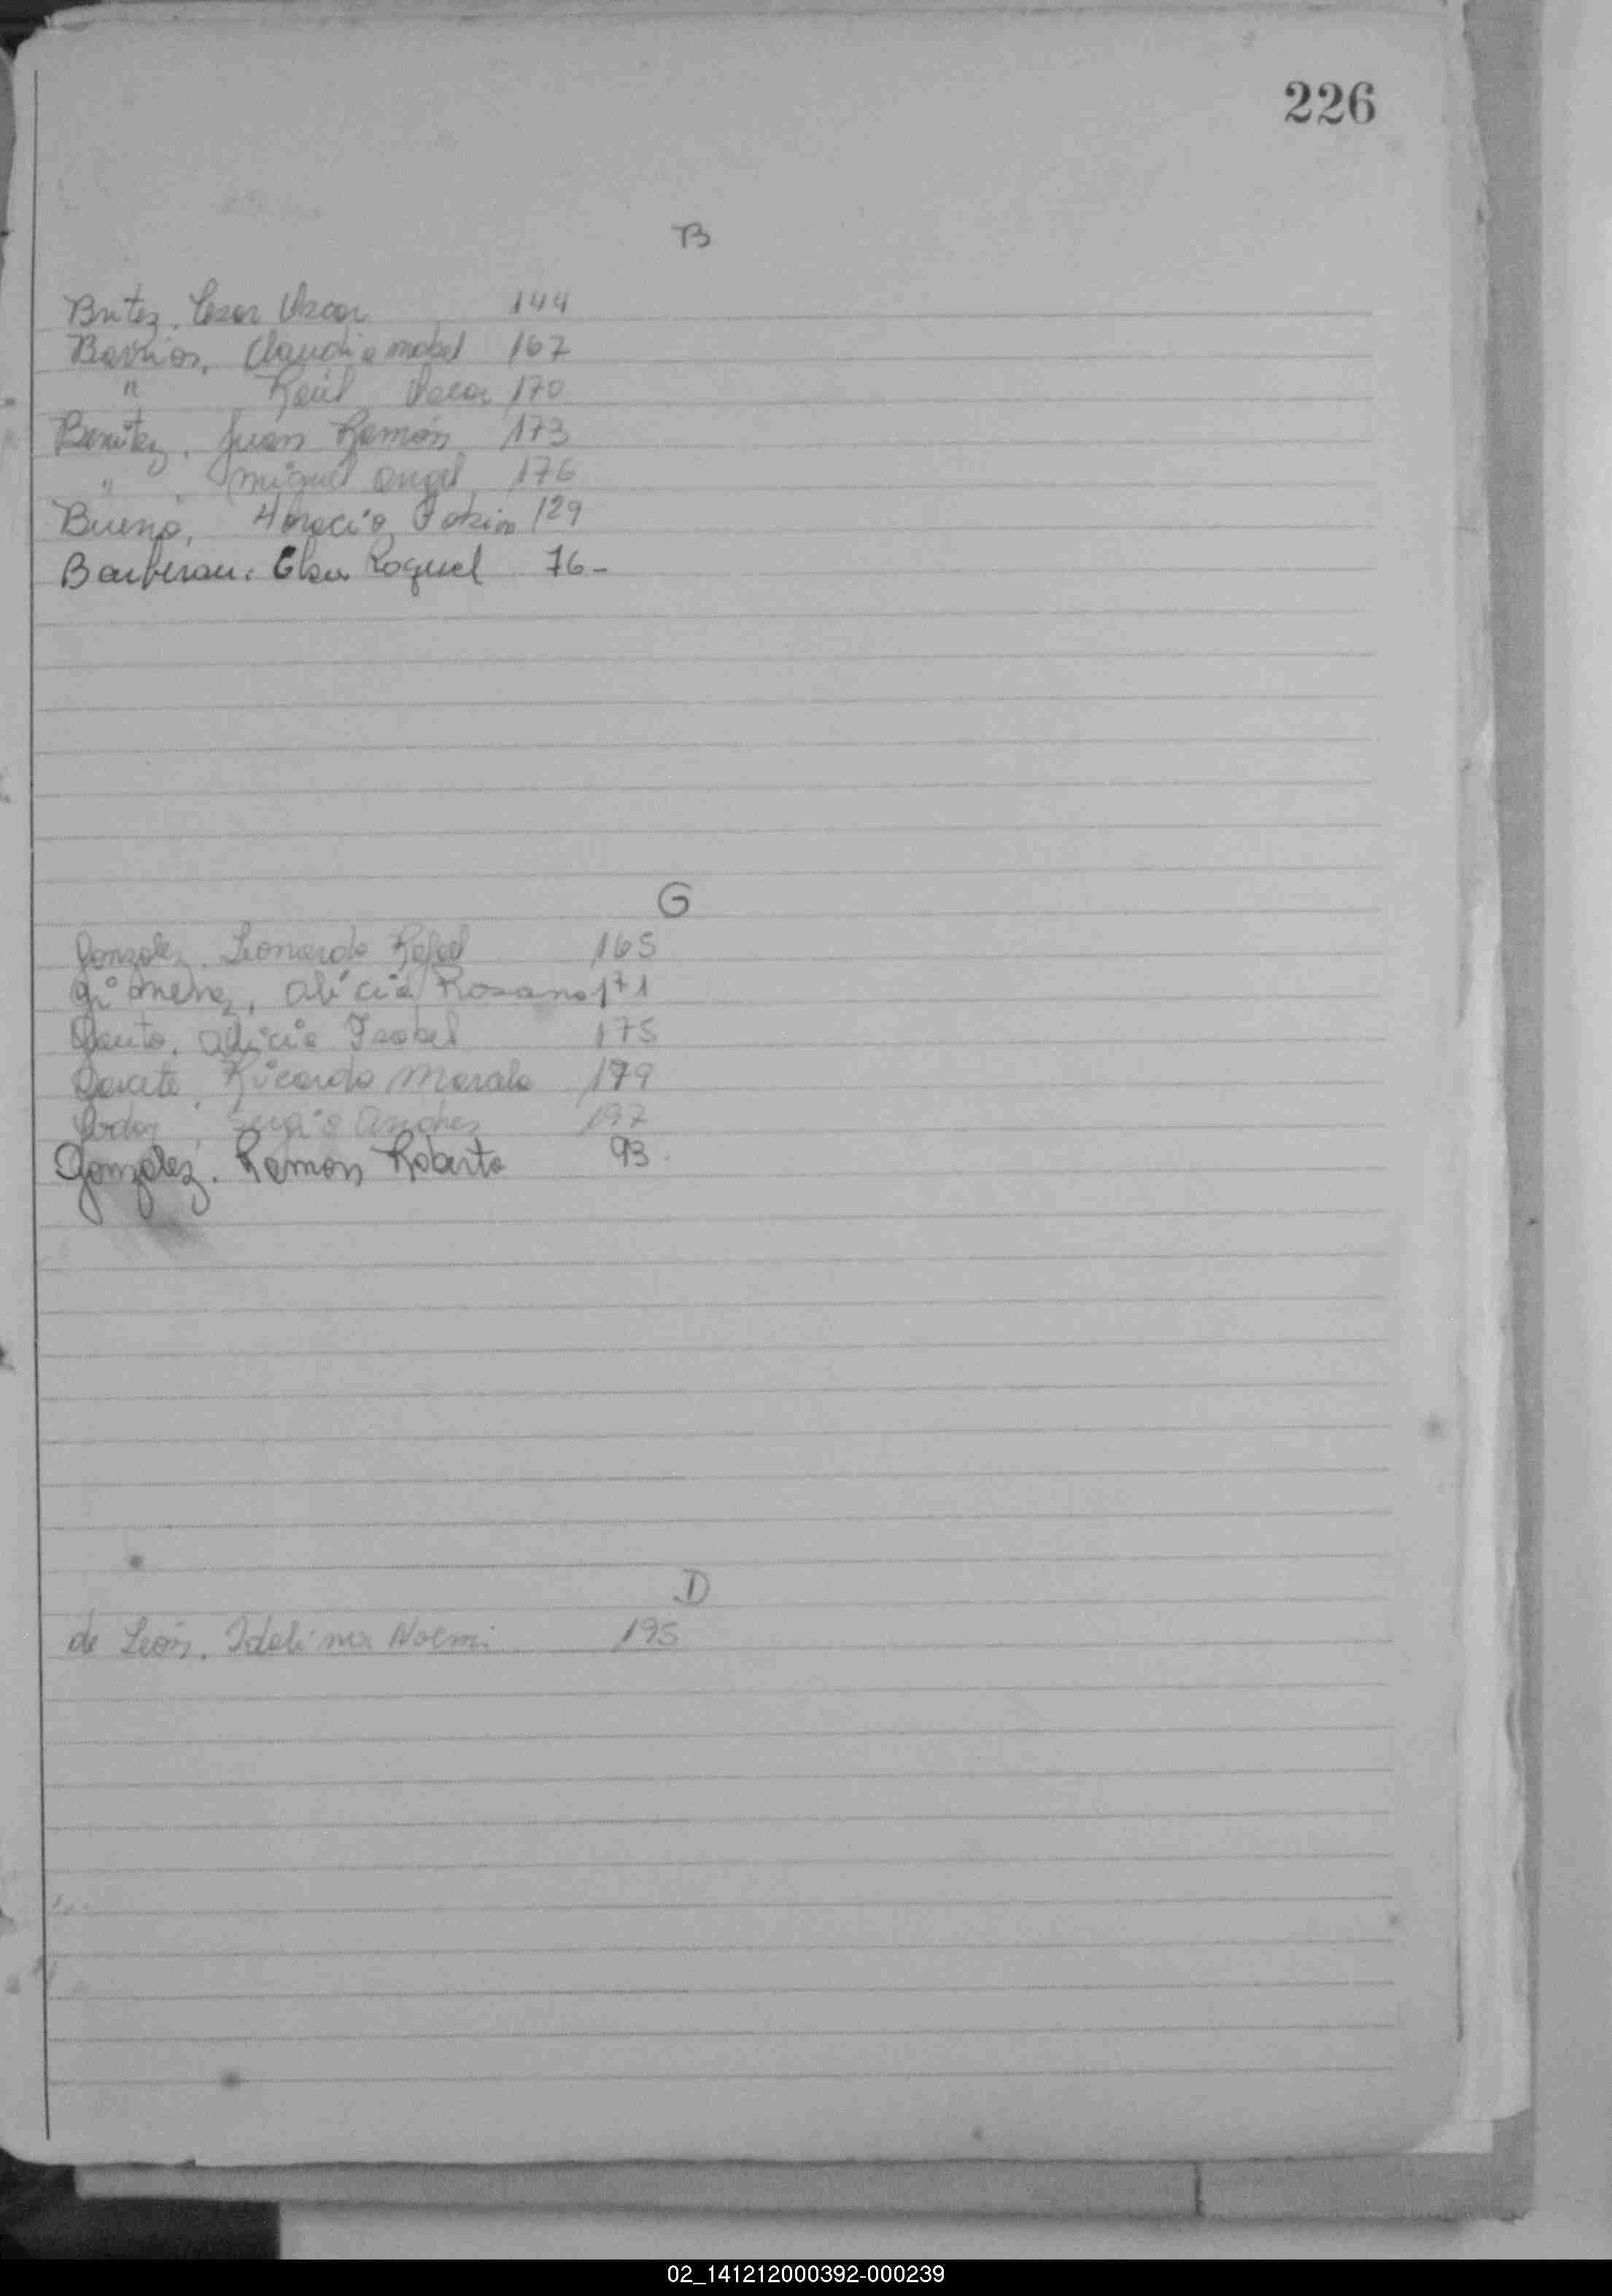 226
B
Britez, Cesar Oscar 144
Barrios, Claudia mabel 167
" Raúl Oscar 170
Benitez, Juan Ramón 173
" , miguel angel 176
Bueno, Horacio 129
Barberan, Elsa Raquel 76-
G
Gonzalez, Leonardo Rafael 165
Gimenez, alicia Rosana 171
Gauto, alicia Isabel 175
Ricardo Marcelo 179
Sergio andres 197
Gonzalez, Ramon Roberto 93
D
de León, Idelina Noemi 195
02_141212000392-000239